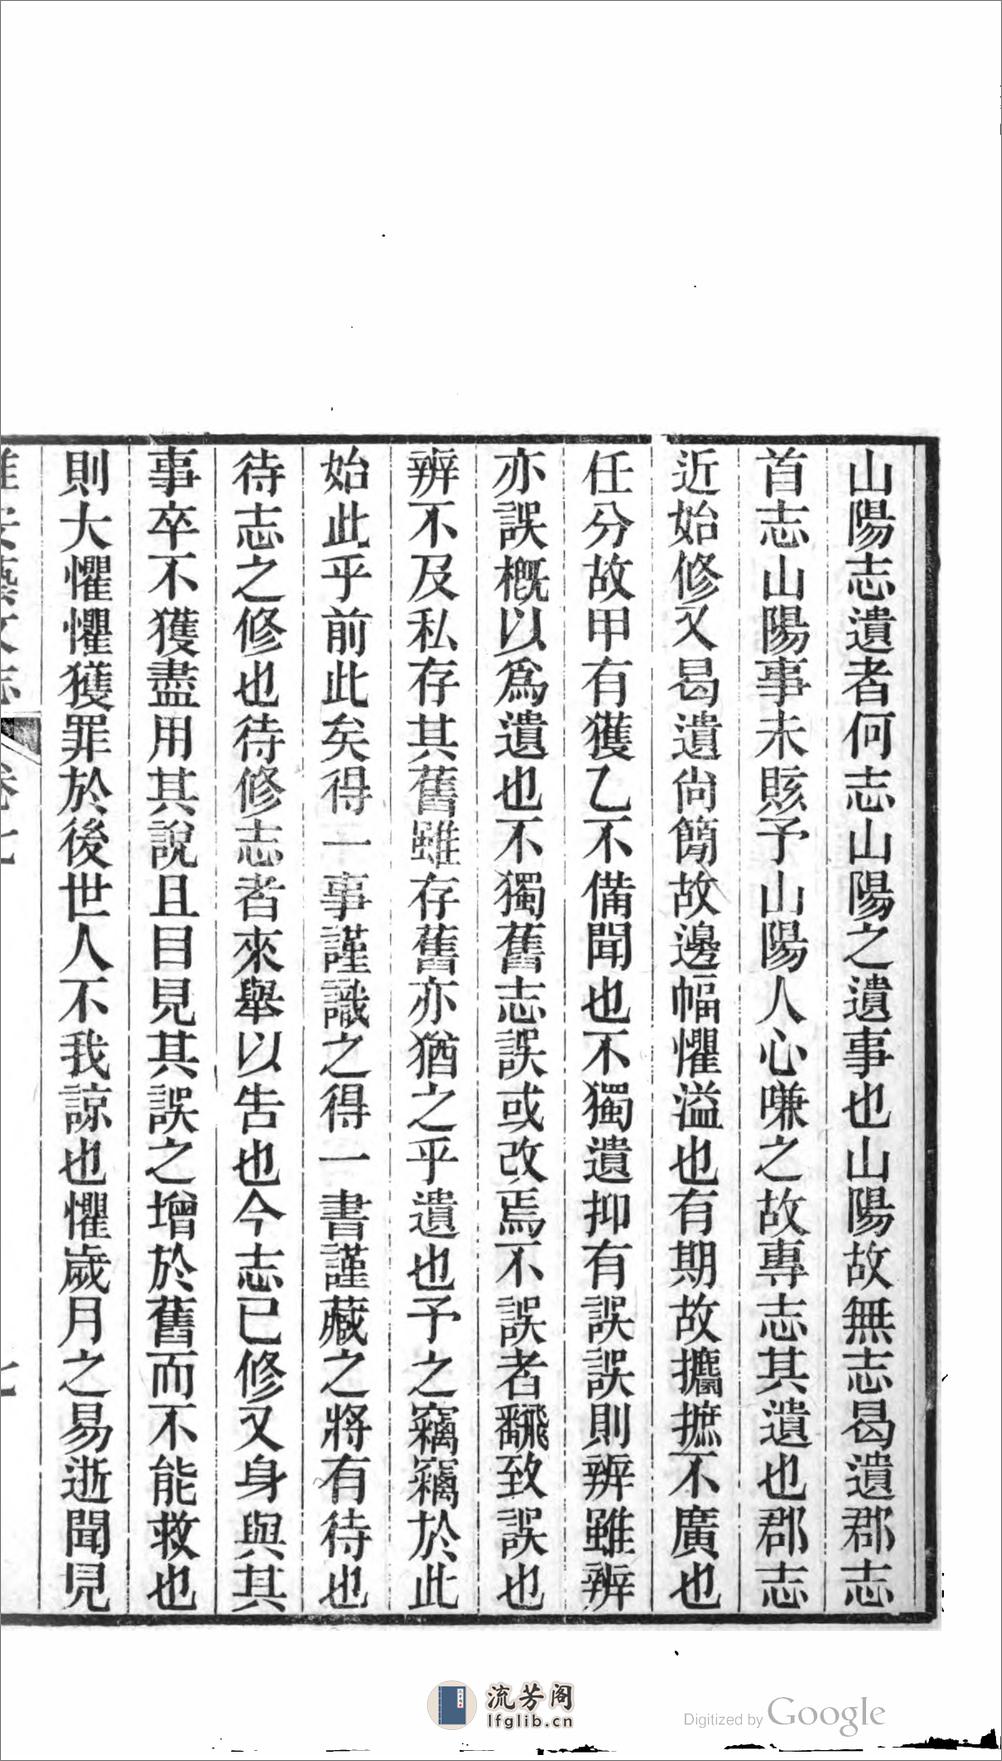 山陽志遺者何志山陽之遺事也山陽故無志曷遺郡志
首志山陽事未賅予山陽人心嗛之故專志其遺也郡志
近始修又曷遺尚簡故邊幅懼溢也有期故攟摭不廣也
任分故甲有獲乙不備聞也不獨遺抑有誤誤則辨雖辨
亦誤概以爲遺也不獨舊志誤或改焉不誤者飜致誤也
辨不及私存其舊雖存舊亦猶之乎遺也予之竊竊於此
始此乎前此矣得一事謹識之得一書謹藏之將有待也
待志之修也待修志者來舉以告也今志已修又身與其
事卒不獲盡用其說且目見其誤之增於舊而不能救也
則大懼懼獲罪於後世人不我諒也懼歲月之易逝聞見
淮安藝文志 卷七 七
流芳阁
lfglib.cn
Digitized by Google